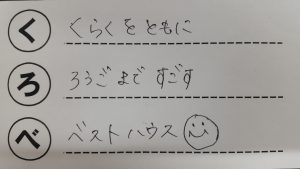 く くらくを ともに
ろ ろうごまで すごす
べ ベストハウス